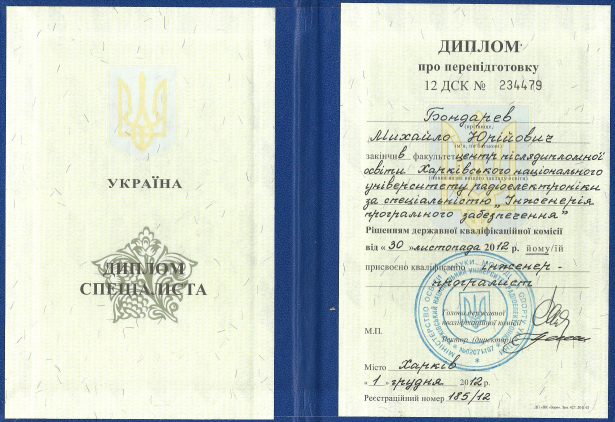 УКРАЇНА
ДИПЛОМ
СПЕЦІАЛІСТА
ДИПЛОМ
про перепідготовку
12 ДСК № 234479
Бондарев
Михайло Юрійович
закінчив факультет центр післядипломної
освіти Харківського національного
університету радіоелектроніки
за спеціальністю „Інженерія
програмного забезпечення"
Рішенням державної кваліфікаційної комісії
від « 30 » листопада 2012 р. йому/їй
присвоєно кваліфікацію інженер-
програміст
Голова державної
кваліфікаційної комісії
М.П.
Ректор (директор)
Місто Харків
« 1 » грудня 2012 р.
Реєстраційний номер 185/12